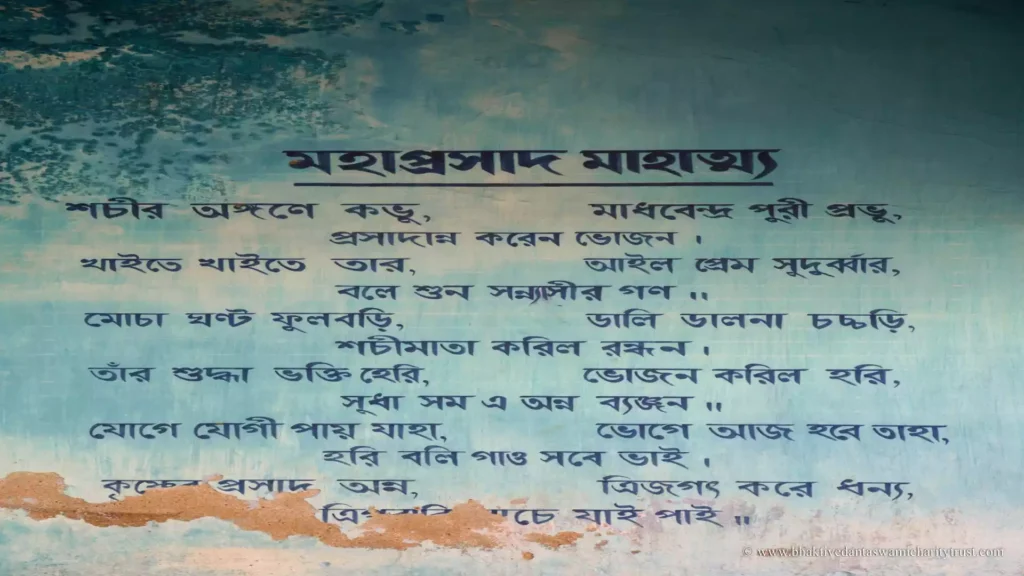 মহাপ্রসাদ মাহাত্ম্য
শচীর অঙ্গণে কভু, মাধবেন্দ্র পুরী প্রভু,
প্রসাদান্ন করেন ভোজন ।
খাইতে খাইতে তার, আইল প্রেম সুদুর্ব্বার,
বলে শুন সন্ন্যাসীর গণ ।।
মোচা ঘণ্ট ফুলবড়ি, ডালি ডালনা চচ্চড়ি,
শচীমাতা করিল রন্ধন ।
তাঁর শুদ্ধা ভক্তি হেরি, ভোজন করিল হরি,
সুধা সম এ অন্ন ব্যঞ্জন ।।
যোগে যোগী পায় যাহা, ভোগে আজ হবে তাহা,
হরি বলি গাও সবে ভাই ।
প্রসাদ অন্ন, ত্রিজগৎ করে ধন্য,
যাই পাই ।।
© www.bhaktivedantaswamicharitytrust.com